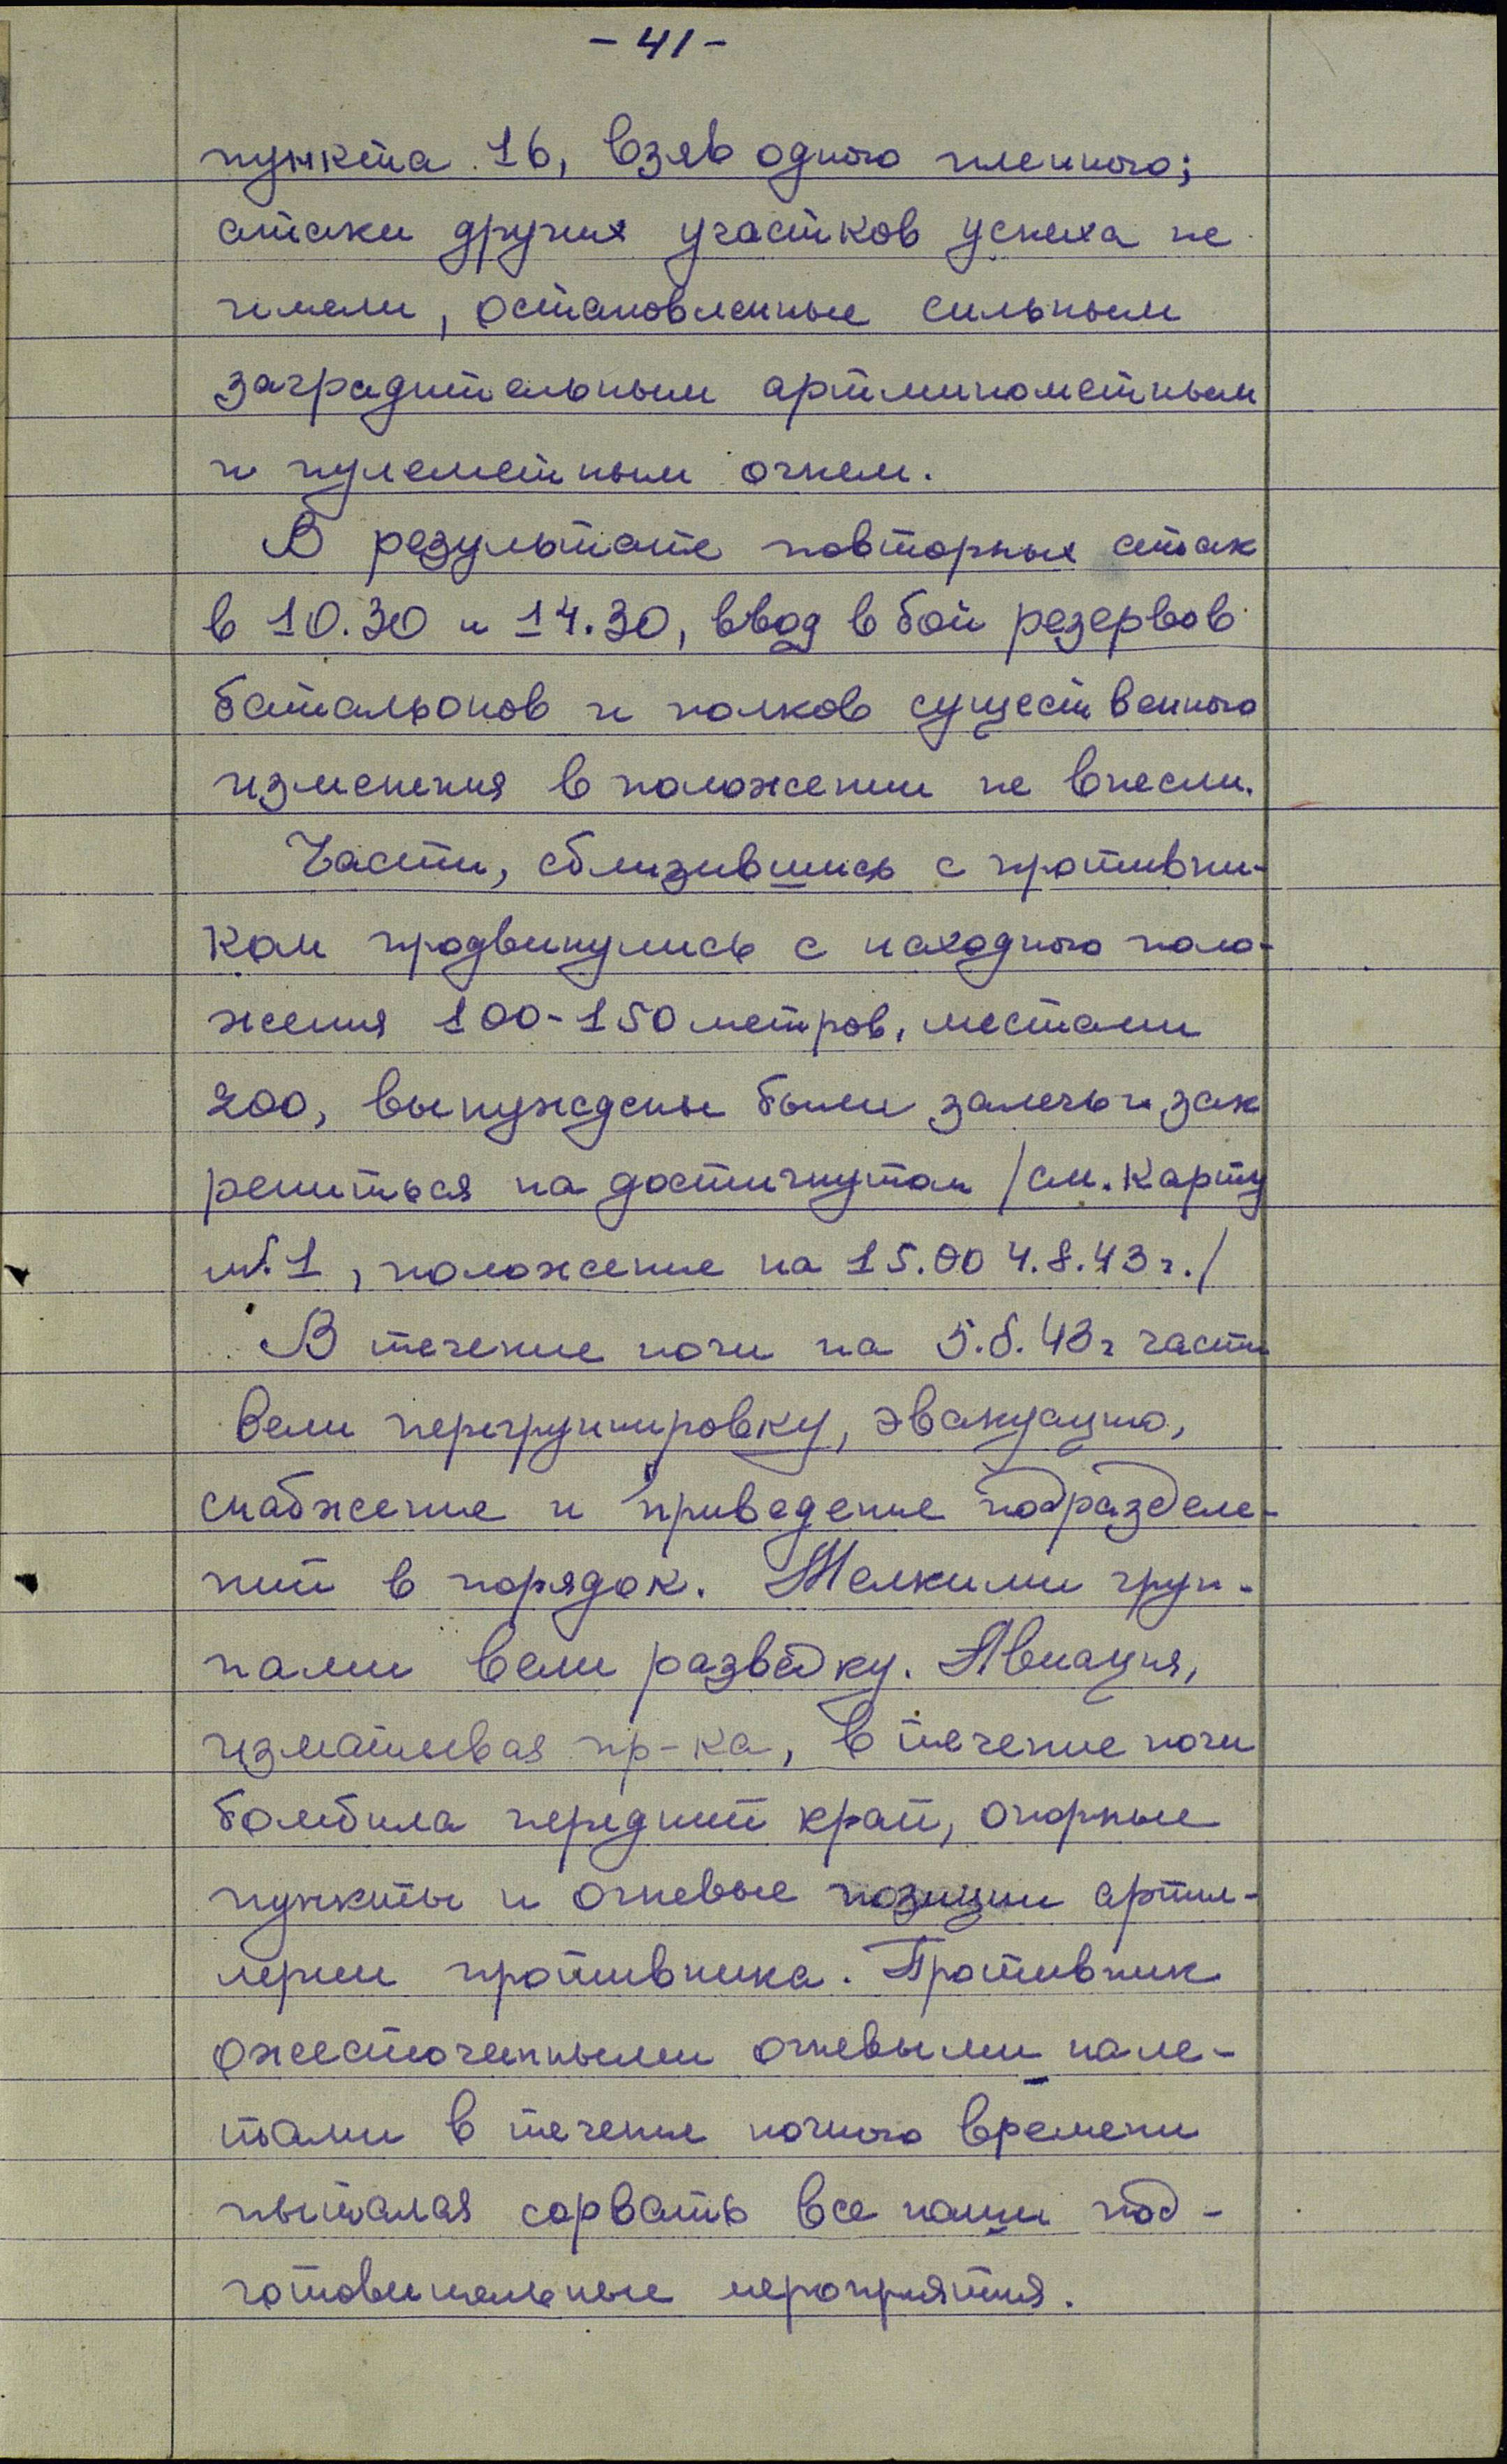 - 41 -
пункта 16, взяв одного пленного;
атаки других участков успеха не
имели, остановленные сильным
заградительным артминометным
и пулеметным огнем.
В результате повторных атак
в 10.30 и 14.30, ввод в бой резервов
батальонов и полков существенного
изменения в положении не внесли.
Части, сблизившись с противни-
ком продвинулись с исходного поло-
жения 100-150 метров, местами
200, вынуждены были залечь и зак
репиться на достигнутом /см. карту
№1, положение на 15.00 4.8.43 г./
В течение ночи на 5.8.43 г части
вели перегруппировку, эвакуацию,
снабжение и приведение подразделе-
ний в порядок. Мелкими груп-
пами вели разведку. Авиация,
изматывая пр-ка, в течение ночи
бомбила передний край, опорные
пункты и огневые позиции артил-
лерии противника. Противник
ожесточенными огневыми нале-
тами в течение ночного времени
пытался сорвать все наши под-
готовительные мероприятия.